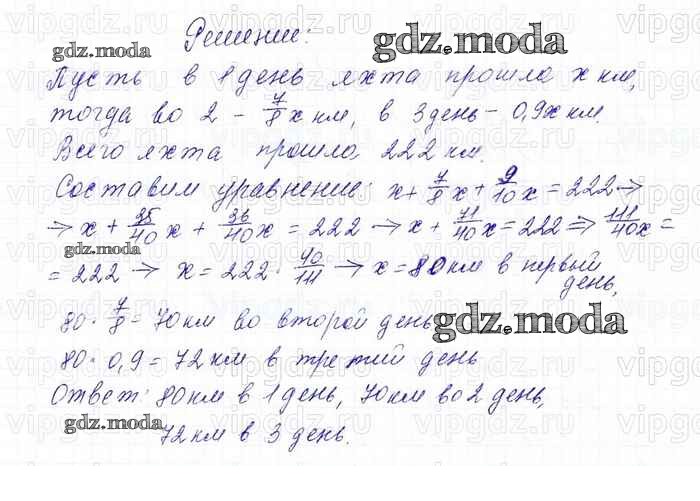 Решение:
Пусть в 1 день яхта прошла x км,
тогда во 2 - 7/8 x км, в 3 день - 0,9x км.
Всего яхта прошла 222 км.
Составим уравнение: x + 7/8 x + 9/10 x = 222 →
→ x + 35/40 x + 36/40 x = 222 → x + 71/40 x = 222 ⇒ 111/40 x =
= 222 → x = 222 · 40/111 → x = 80 км в первый
день,
80 · 7/8 = 70 км во второй день
80 · 0,9 = 72 км в третий день
Ответ: 80 км в 1 день, 70 км во 2 день,
72 км в 3 день.
gdz.moda
gdz.moda
gdz.moda
gdz.moda
gdz.moda